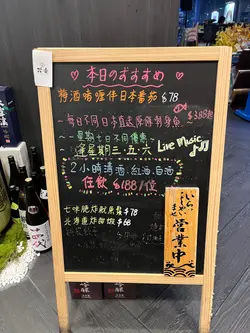 本日のおすすめ
梅酒啫喱伴日本番茄 $78
~每日不同日本直送原條刺身魚~ $338起
~星期七日不同優惠~
逢星期三.五.六 Live Music
2小時清酒.紅.白酒
任飲 $188/位
七味脆炸魷魚鬚 $78
$68
いらっしゃいませ
営業中